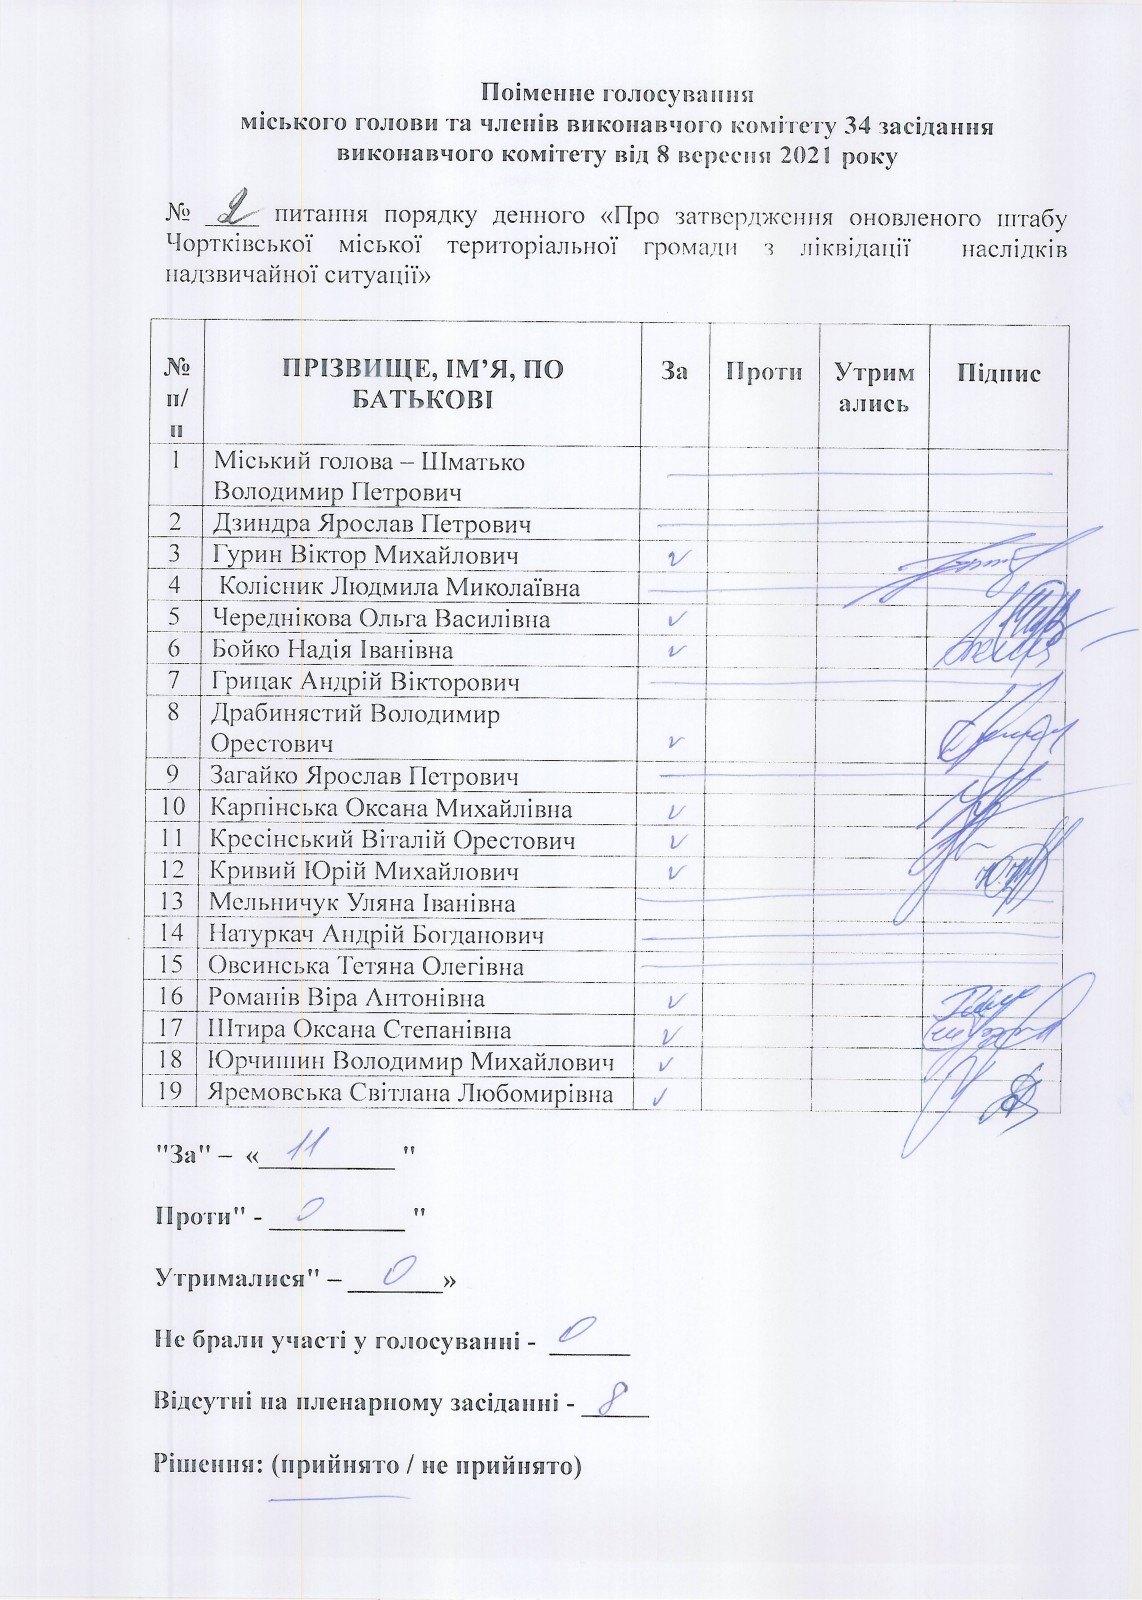 Поіменне голосування
міського голови та членів виконавчого комітету 34 засідання
виконавчого комітету від 8 вересня 2021 року
№ 2 питання порядку денного «Про затвердження оновленого штабу
Чортківської міської територіальної громади з ліквідації наслідків
надзвичайної ситуації»
№ п/п ПРІЗВИЩЕ, ІМ’Я, ПО БАТЬКОВІ За Проти Утримались Підпис
1 Міський голова – Шматько
Володимир Петрович
2 Дзиндра Ярослав Петрович
3 Гурин Віктор Михайлович
4 Колісник Людмила Миколаївна
5 Череднікова Ольга Василівна
6 Бойко Надія Іванівна
7 Грицак Андрій Вікторович
8 Драбинястий Володимир
Орестович
9 Загайко Ярослав Петрович
10 Карпінська Оксана Михайлівна
11 Кресінський Віталій Орестович
12 Кривий Юрій Михайлович
13 Мельничук Уляна Іванівна
14 Натуркач Андрій Богданович
15 Овсинська Тетяна Олегівна
16 Романів Віра Антонівна
17 Штира Оксана Степанівна
18 Юрчишин Володимир Михайлович
19 Яремовська Світлана Любомирівна
"За" – « 11 "
Проти" - 0 "
Утрималися" – 0 »
Не брали участі у голосуванні - 0
Відсутні на пленарному засіданні - 8
Рішення: (прийнято / не прийнято)